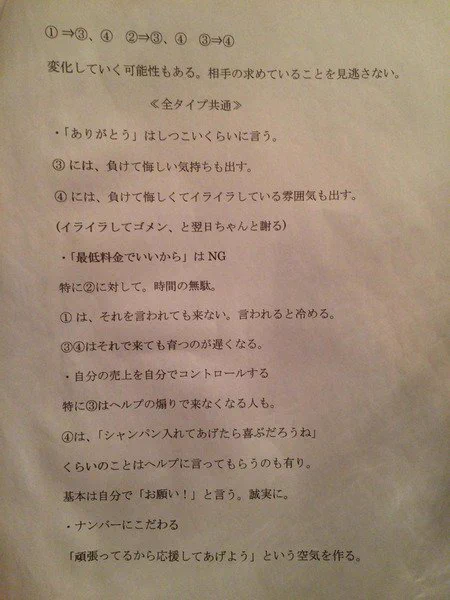 ①⇒③、④　②⇒③、④　③⇒④
変化していく可能性もある。相手の求めていることを見逃さない。
≪全タイプ共通≫
・「ありがとう」はしつこいくらいに言う。
③には、負けて悔しい気持ちも出す。
④には、負けて悔しくてイライラしている雰囲気も出す。
(イライラしてゴメン、と翌日ちゃんと謝る)
・「最低料金でいいから」はNG
特に②に対して。時間の無駄。
①は、それを言われても来ない。言われると冷める。
③④はそれで来ても育つのが遅くなる。
・自分の売上を自分でコントロールする
特に③はヘルプの煽りで来なくなる人も。
④は、「シャンパン入れてあげたら喜ぶだろうね」
くらいのことはヘルプに言ってもらうのも有り。
基本は自分で「お願い！」と言う。誠実に。
・ナンバーにこだわる
「頑張ってるから応援してあげよう」という空気を作る。